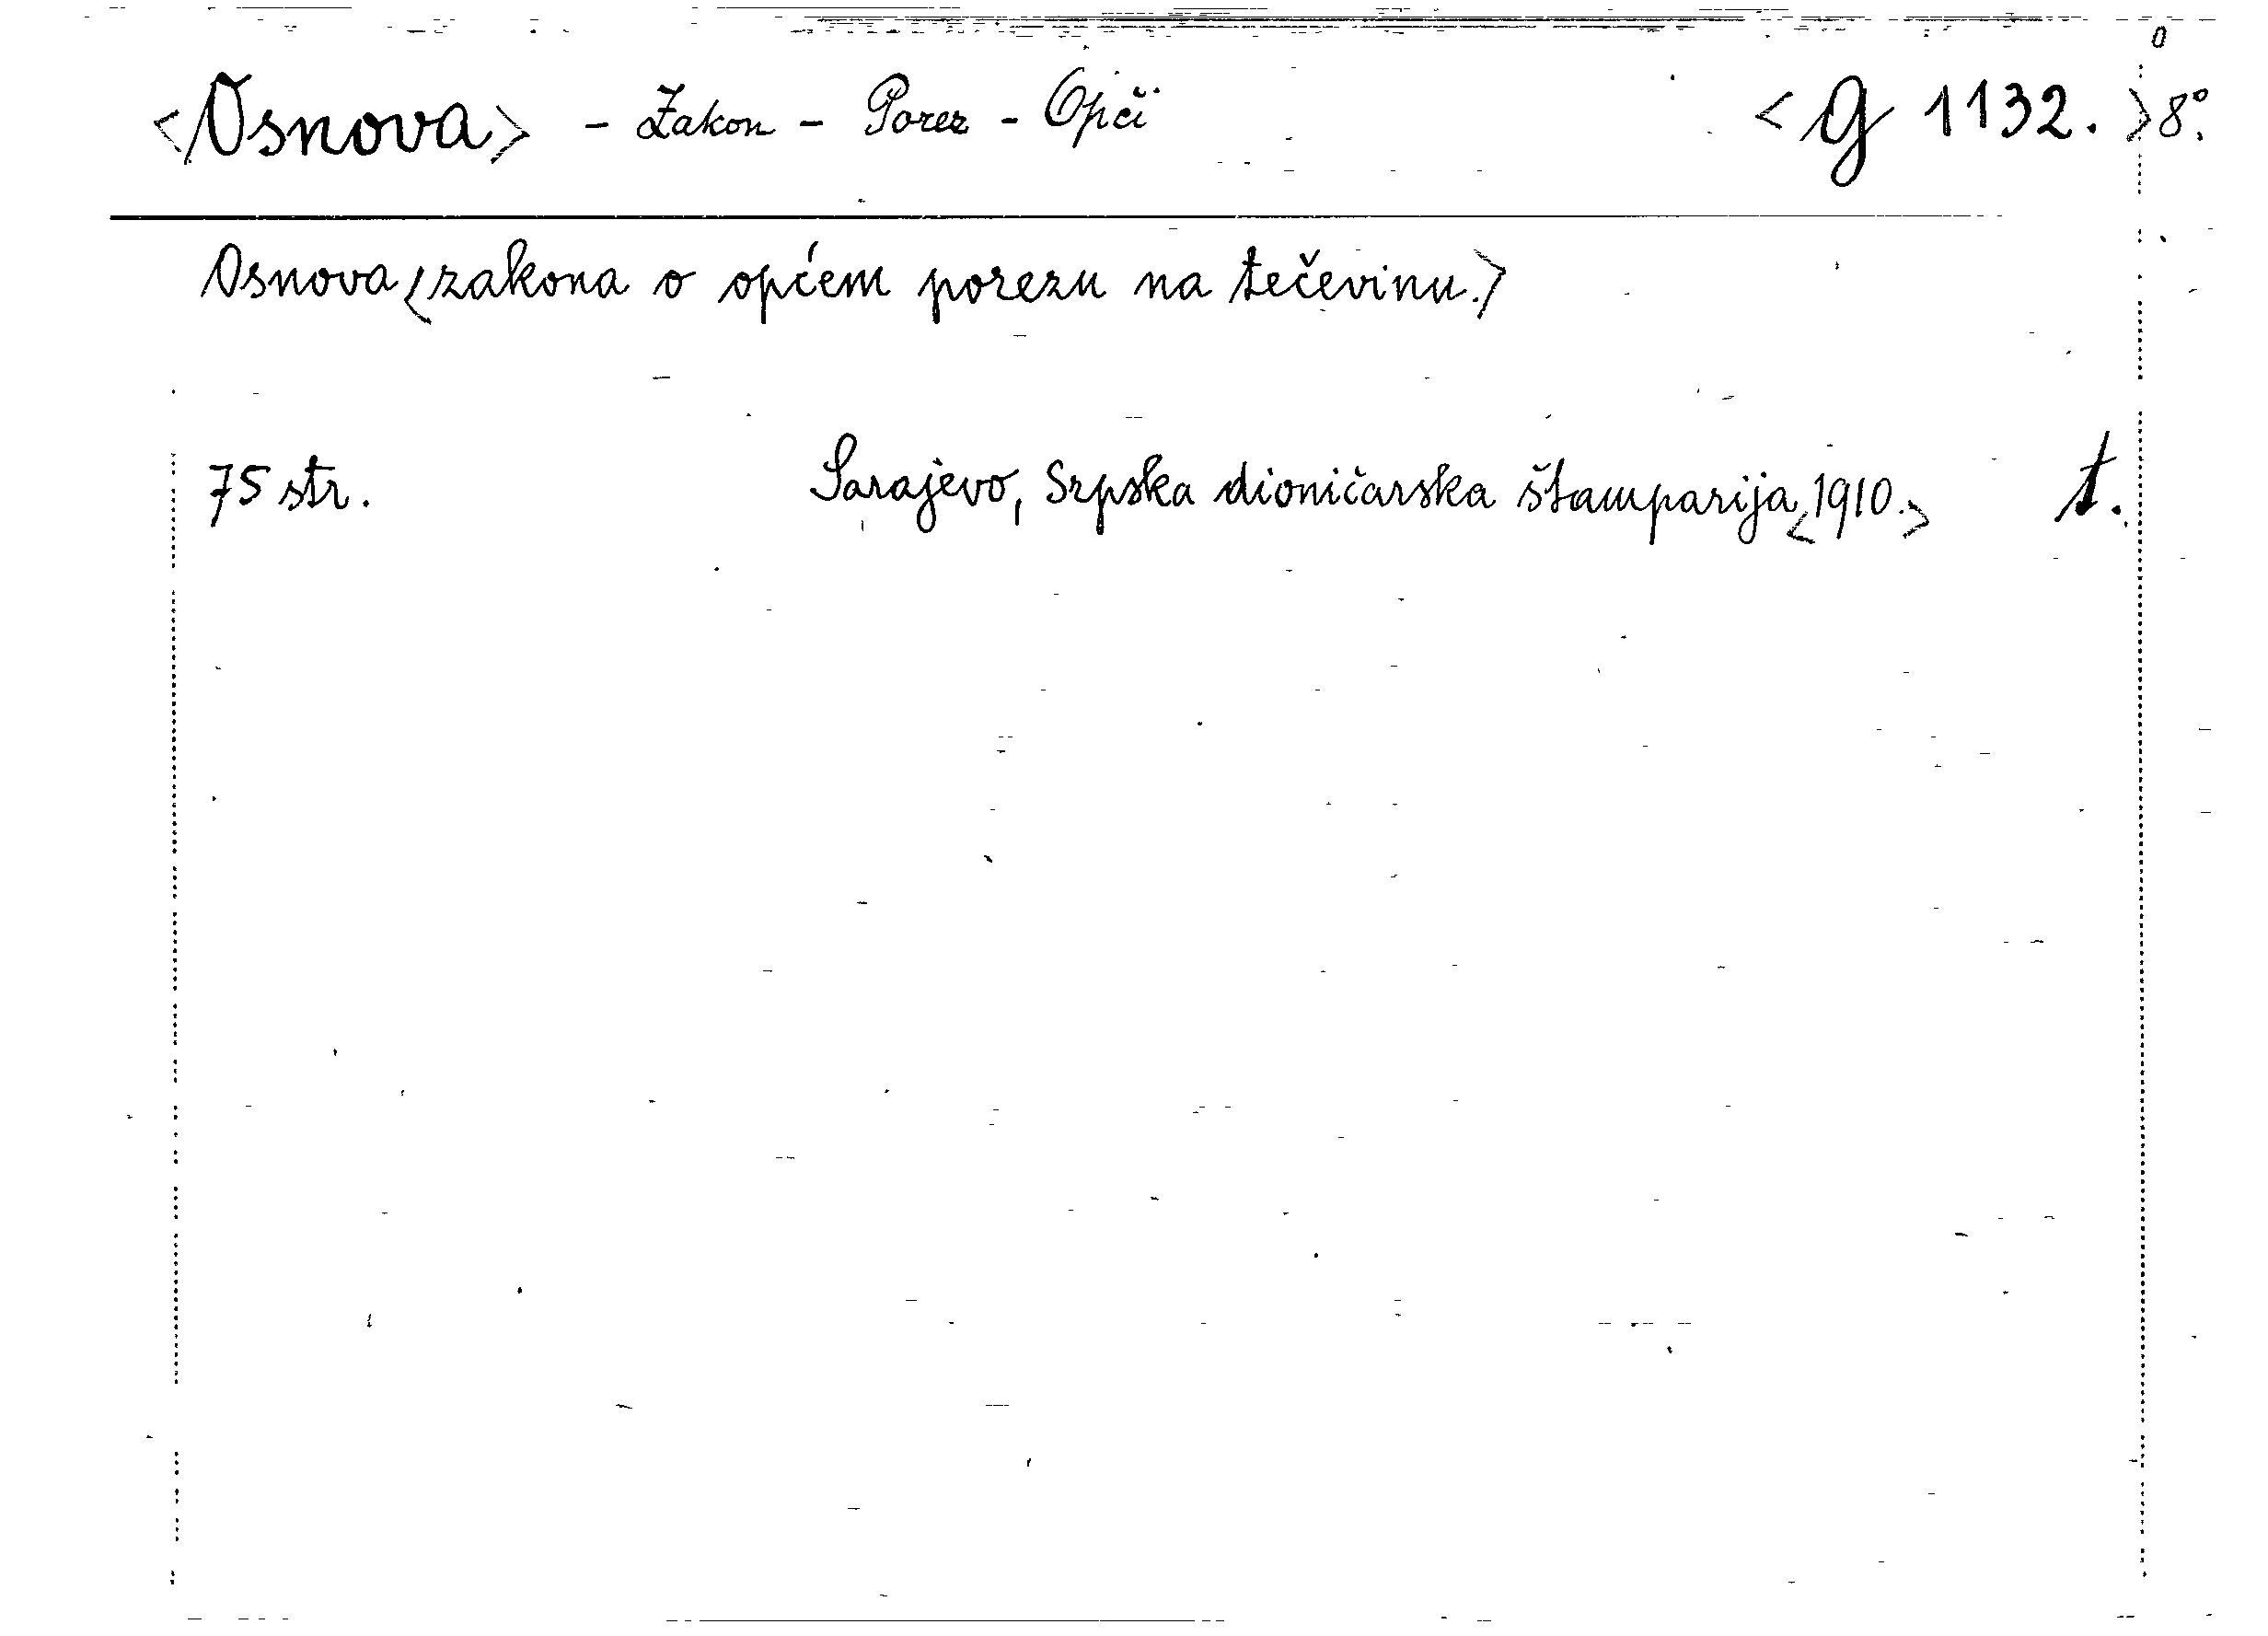 <Osnova> - Zakon - Porez - Opći <G 1132.> 8°
Osnova <zakona o općem porezu na tečevinu.>
75 str. Sarajevo, Srpska dioničarska štamparija <1910.> t.